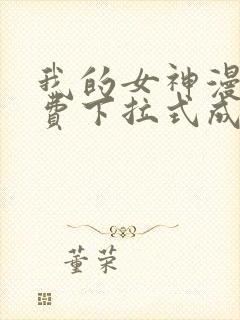 我的女神漫
費下拉式成
董荣